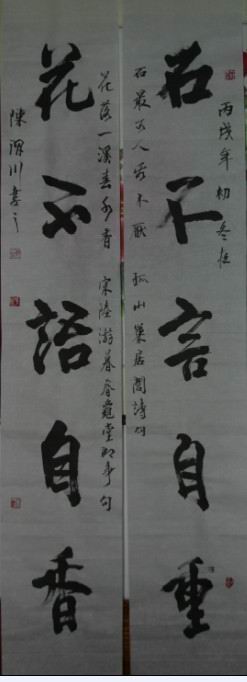 丙戌年初冬
石不言自重
石最可人不厭 孤山巢居閣詩句
花落一溪春水香 宋陸游暮春龜堂即事句
花不語自香
陳川書之